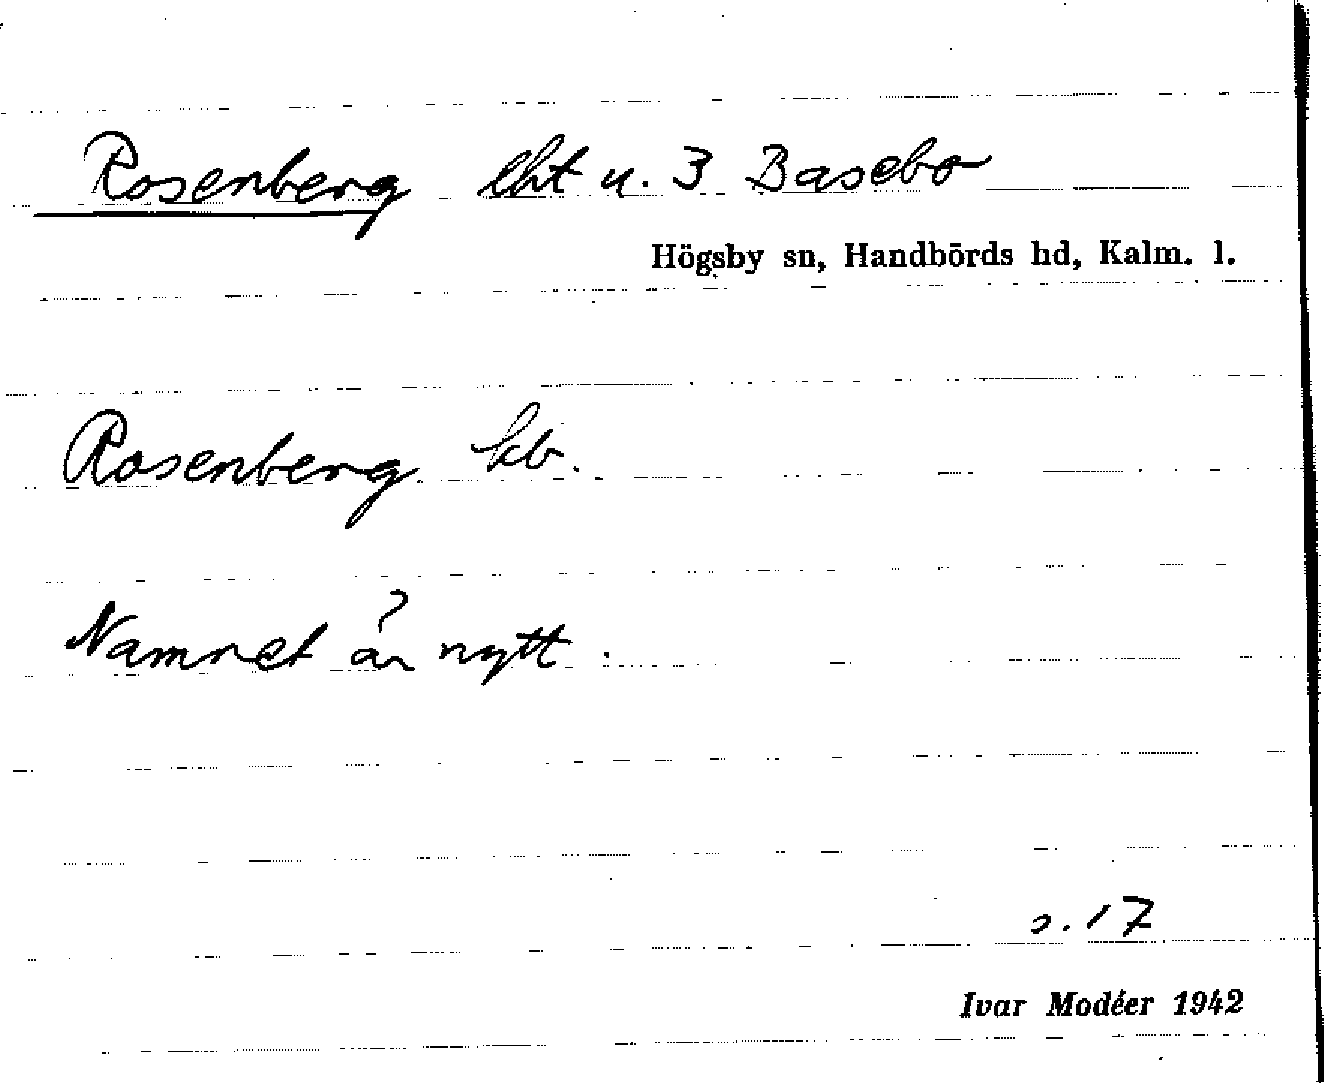 Rosenberg lht u. 3 Basebo
Högsby sn, Handbörds hd, Kalm. l.
Rosenberg kb.
Namnet är nytt.
s. 17
Ivar Modéer 1942